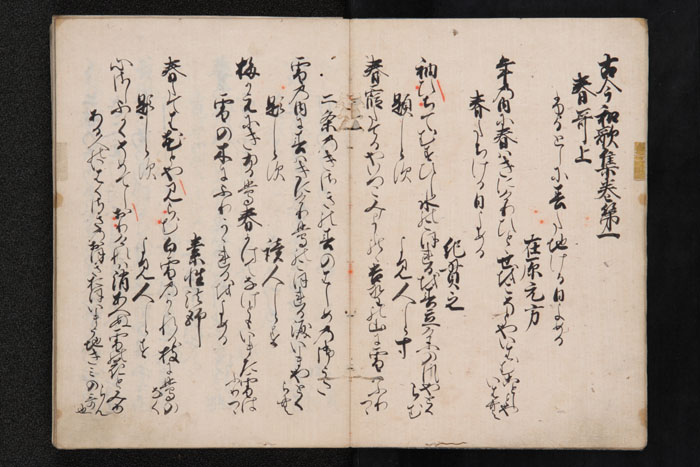 古今和歌集巻第一
春哥上
ふるとしに春たちける日よめる
在原元方
年の内に春はきにけりひととせをこそとやいはんことしとや
いはむ
春たちける日よめる
紀貫之
袖ひちてむすひし水のこほれるを春立けふの風やとく
らむ
題しらす
よみ人しらす
春霞たてるやいつこみよしのゝ吉野の山に雪はふりつゝ
二条のきさきの春のはしめの御うた
雪の内に春はきにけり鶯のこほれる涙いまやとく
らむ
題しらす
読人しらす
梅かえにきゐる鶯春かけてなけともいまた雪は
ふりつゝ
雪の木にふりかゝれるをよめる
素性法師
春たては花とや見らむ白雪のかゝれる枝に鶯の
なく
題しらす
よみ人しらす
心さしふかくそめてしおりけれは消あへぬ雪の花と見ゆ
らん